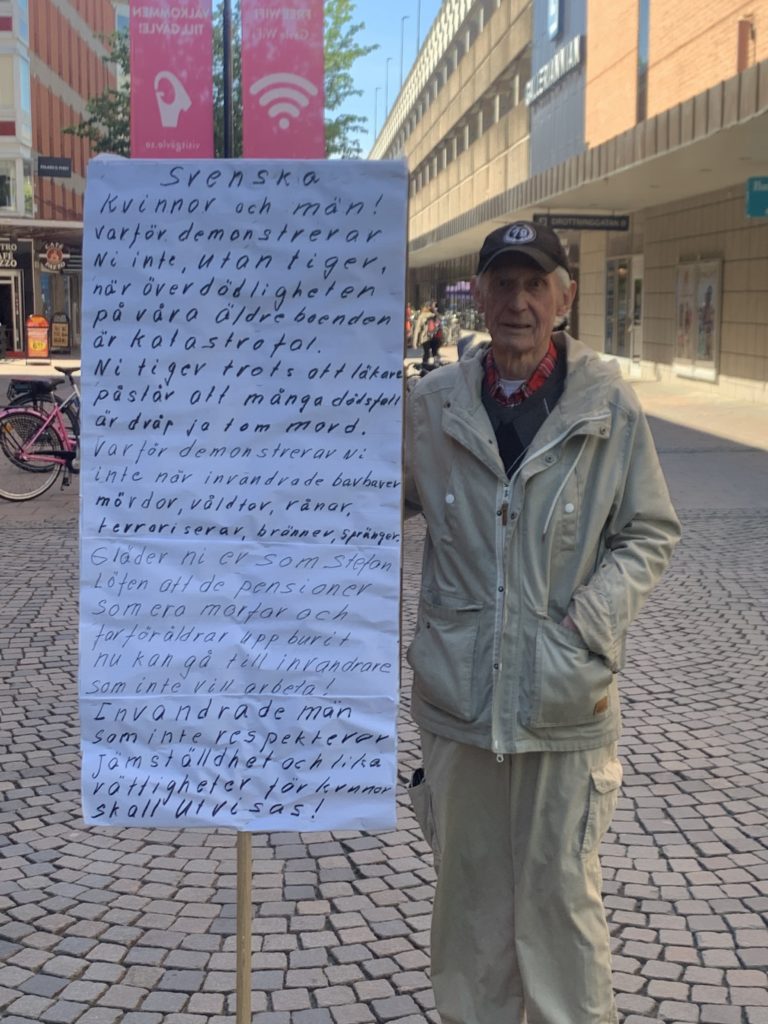 VÄLKOMMEN
TILL GÄVLE!
visitgävle.se
FREE WIFI
Gävle WiFi
DROTTNINGGATAN 9
Svenska
kvinnor och män!
varför demonstrerar
Ni inte, utan tiger,
när överdödligheten
på våra äldreboenden
är katastrofal.
Ni tiger trots att läkare
påstår att många dödsfall
är dråp ja tom mord.
Varför demonstrerar Ni
inte när invandrade barbarer
mördar, våldtar, rånar,
terroriserar, bränner, spränger.
Gläder ni er som Stefan
Löfen att de pensioner
som era morfar och
farföräldrar upp burit
nu kan gå till invandrare
som inte vill arbeta!
Invandrade män
som inte respekterar
jämställdhet och lika
rättigheter för kvinnor
skall utvisas!